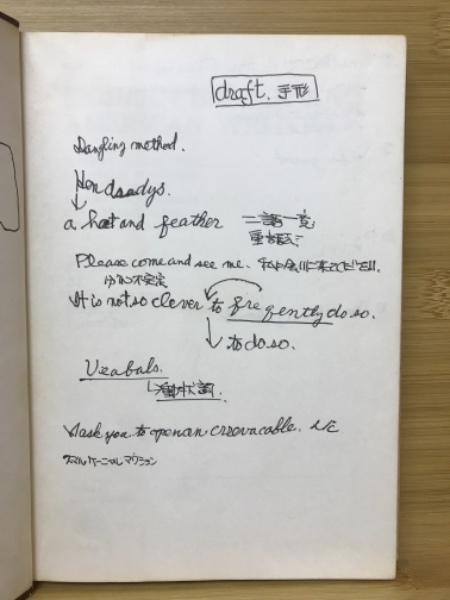 draft. 手形
Dangling method.
Hendsadys.
a hat and feather 二語一意
Please come and see me. 私に会いに来てください.
分りの不安定
It is not so clever to freqently do so.
to do so.
Verabals.
I ask you to open an irrevocable. L/C